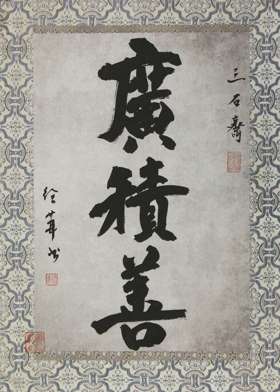 三石齋
廣積善